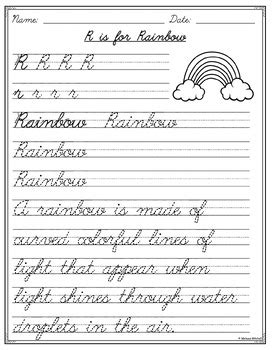 Name: Date:
R is for Rainbow
R R R R
r r r r
Rainbow Rainbow
Rainbow
Rainbow
A rainbow is made of
curved colorful lines of
light that appear when
light shines through water
droplets in the air.